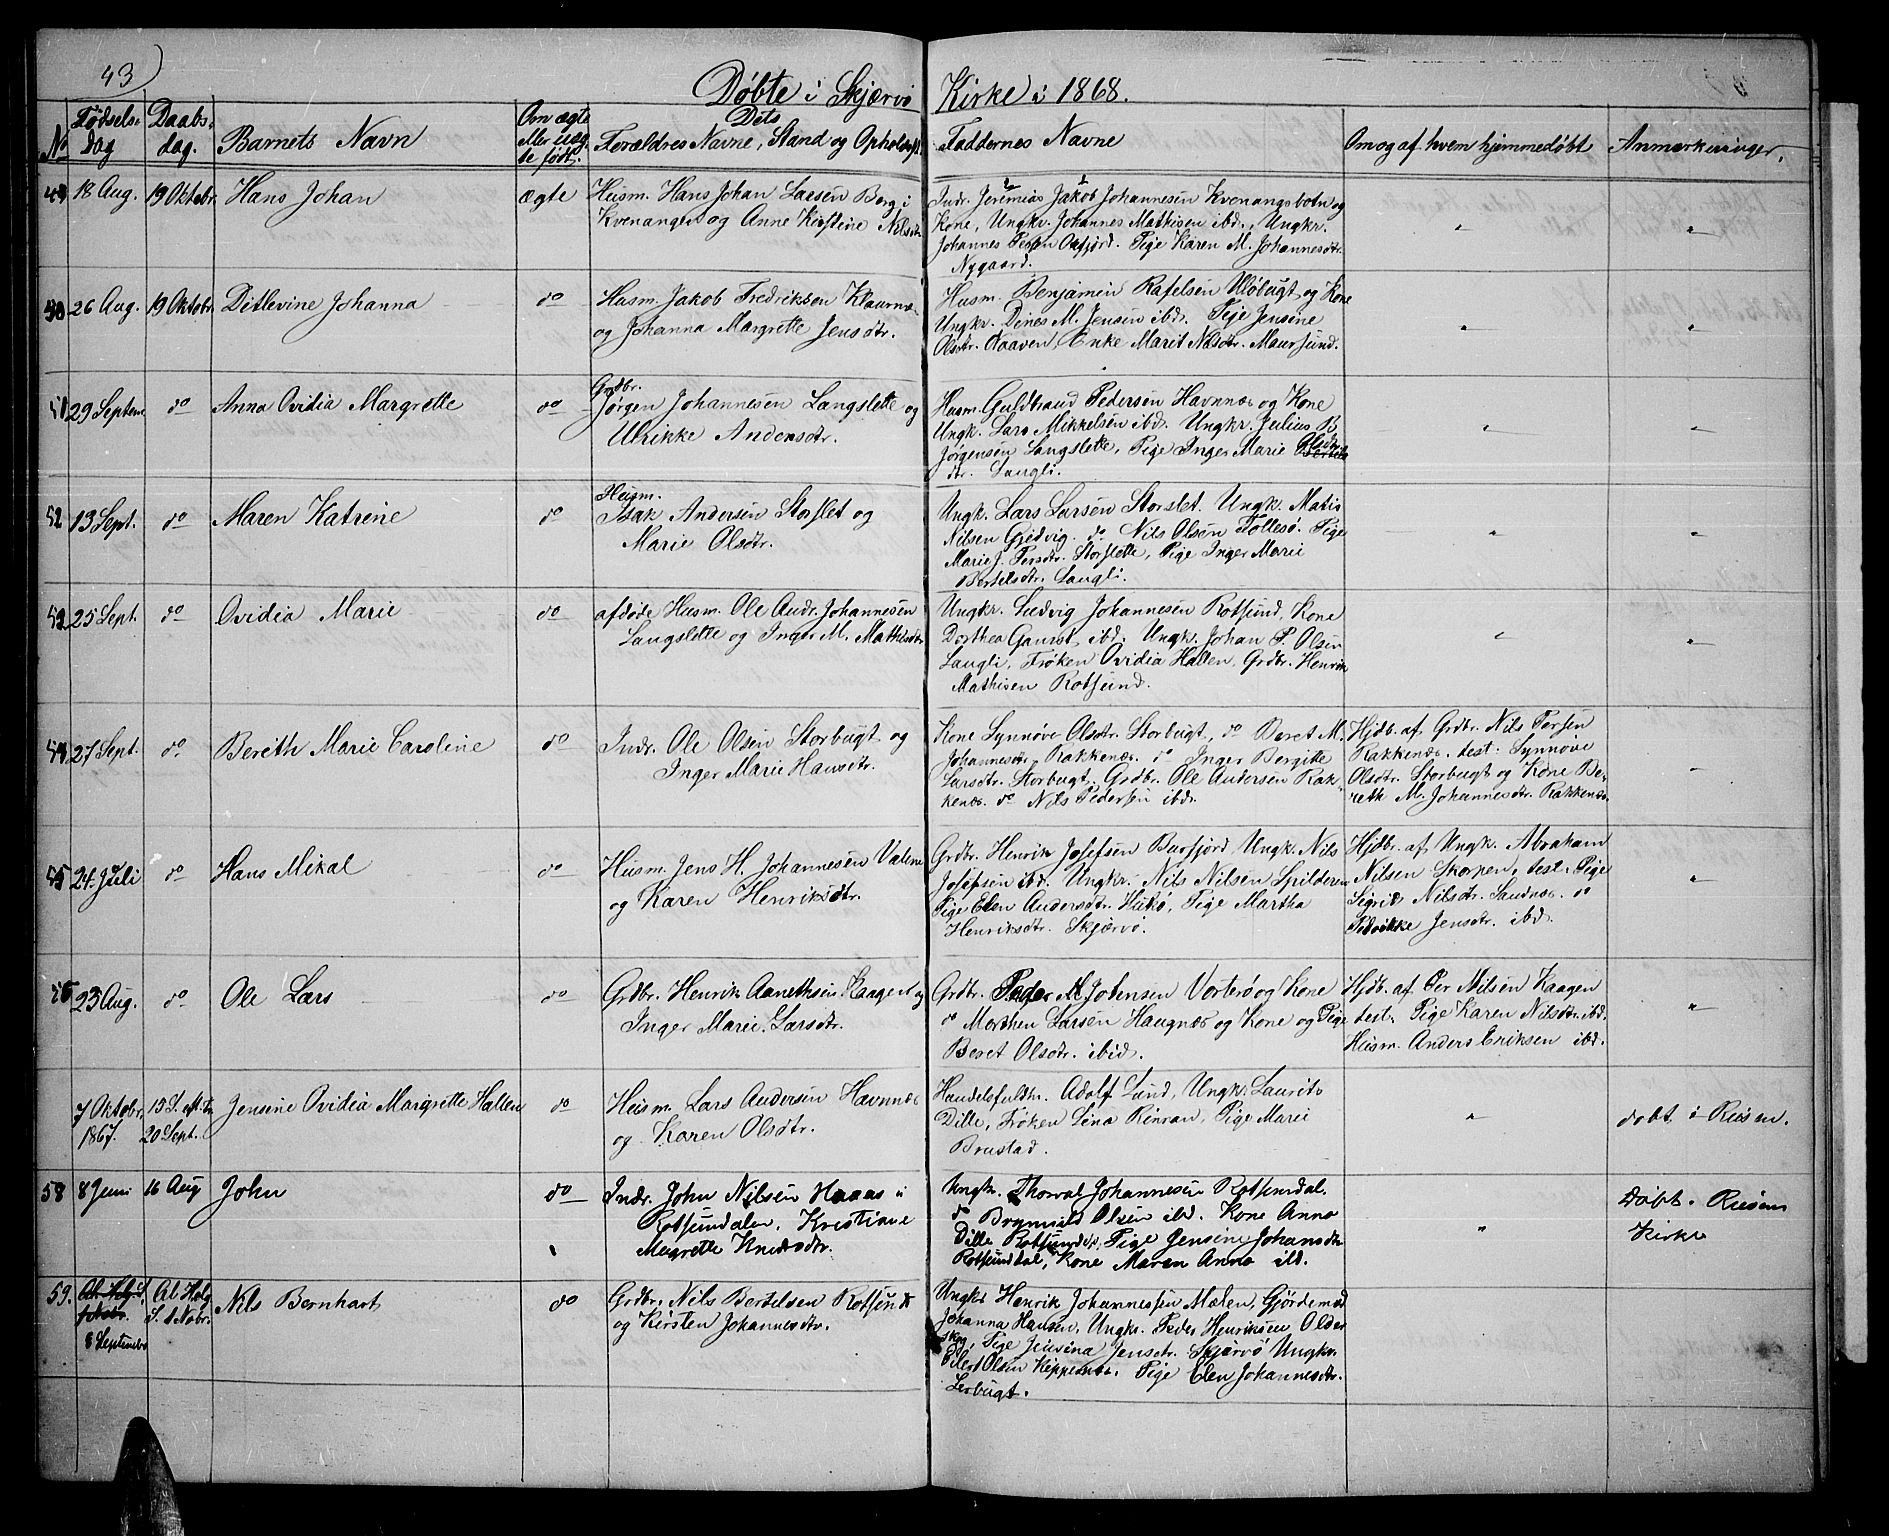 43)
Døbte i Skjærvö Kirke i 1868.
No
Fødsels-
Dag
Daabs-
dag.
Barnets Navn
Om ægte
eller uæg-
te født.
Dets
Forældres Navne, Stand og Opholdsst.
Faddernes Navne
Om og af hvem hjemmedøbt
Anmærkninger.
49 18 Aug. 19 Oktobr. Hans Johan ægte
Husm. Hans Johan Larsen Borg i
Kvenangen og Anne Kirstine Nilsdtr.
Indr. Jeremias Jakob Johannesen Kvenangsbotn og
Kone, Ungkr. Johannes Mathisen ibd., Ungkr.
Johannes Persen Oxfjord. Pige Karen M. Johannesdtr.
Nygaard.
" "
50 26 Aug. 19 Oktobr. Ditlevine Johanna do
Husm. Jakob Fredriksen Klaurnæs
og Johanna Margrette Jensdtr.
Husm. Benjamin Rafelsen Uløbugt og Kone
Ungkr. Dines M. Jensen ibdr. Pige Jensine
Olsdtr. Aaaven, Enke Marit Nilsdtr. Maursund.
" "
51 29 Septem do Anna Ovidia Margrette do
Grdbr.
Jørgen Johannesen Langslette og
Ulrikke Andersdtr.
Husm. Guldbrand Pedersen Havnnæs og Kone
Ungk. Lars Mikkelsen ibd. Ungkr. Julius B.
Jørgensen Langslette, Pige Inger Marie Olsdtr.
dtr. Laugli.
" "
52 13 Sept. do Maren Katrine do
Husm.
Isak Andersen Storslet og
Marie Olsdtr.
Ungk. Lars Larsen Storslet. Ungk. Matis
Nilsen Gjedvig. do Nils Olsen Follesö. Pige
Marie J. Persdtr. Storslette, Pige Inger Marie
Bertelsdtr. Laugli.
" "
53 25 Sept. do Ovidia Marie do
afdøde Husm. Ole Andr. Johannesen
Langslette og Inger M. Mathisdtr.
Ungkr. Ludvig Johannesen Rotsund, Kone
Dorthea Gaurst ibd. Ungk. Johan P. Olsen
Laugli, Frøken Ovidia Hallen, Grdbr. Henrik
Mathisen Rotsund.
" "
54 27 Sept. do Bereth Marie Caroline do
Indr. Ole Olsen Storbugt og
Inger Marie Hansdtr.
Kone Synnøve Olsdtr. Storbugt, do Beret M.
Johannesdtr. Rakkenæs. do Inger Bergitte
Larsdtr. Storbugt. Grdbr. Ole Andersen Rak-
kenæs. do Nils Pedersen ibdr.
Hjdb. af Grdbr. Nils Persen
Rakkenæs. test. Synnøve
Olsdtr. Storbugt og Kone Be-
reth M. Johannesdtr. Rakkenæs.
"
55 24 Juli do Hans Mikal do
Husm. Jens H. Johannesen Valene
og Karen Henriksdtr.
Grdbr. Henrik Josefsen Burfjord Ungk. Nils
Josefsen ibd. Ungkr. Nils Nilsen Spilderen
Pige Elen Andersdtr. Hukö, Pige Martha
Henriksdtr. Skjærvö.
Hjdbr. af Ungk. Abraham
Nilsen Skorpen, test. Pige
Sigrid Nilsdtr. Sandnæs. do
Jensdtr. ibd.
"
56 23 Aug. do Ole Lars do
Grdbr. Henrik Aanethsen Kaagen og
Inger Marie Larsdtr.
Grdbr. Peder M. Johnsen Vorterö og Kone
do Morthen Larsen Haugnæs og Kone og Pige
Beret Olsdtr. ibid.
Hjdb. af Per Nilsen Kaagen
test. Pige Karen Nilsdtr. ibd.
Husm. Anders Eriksen ibd.
"
7 Oktobr.
1867.
15 S. eft. Tr.
20 Sept.
Jensine Ovidia Margrette Hallen do
Husm. Lars Andersen Havnnæs
og Karen Olsdtr.
Handelsfuldm. Adolf Lund, Ungk. Laurits
Dille, Frøken Lina Rinran, Pige Marie
Brustad.
"
døbt i Reisen.
58 8 Juni 16 Aug John do
Indr. John Nilsen Haaas i
Rotsundalen, Kristine
Magrette Knudsdtr.
Ungk. Thorval Johannesen Rotsundal.
do Brynnild Olsen ibd. Kone Anna
Dille Rotsund, Pige Jensine Johansdtr
Rotsundal, Kone Maren Anna ibd.
"
Døbt. Reisens
Kirke
59.
8 Septembr.
Al Helg
S. 1 Nobr.
Nils Bernhart do
Grdbr. Nils Bertelsen Rotsund
og Kirsten Johannesdtr.
Ungkr Henrik Johannessen Mælen, Gjördemod
Johanna Hansen, Ungkr. Peder Henriksen Older
skog, Pige Jensina Jensdtr. Skjærvö Ungkr.
Eilert Olsen Keppernæs. Pige Elen Johannesdtr.
Lerbugt.